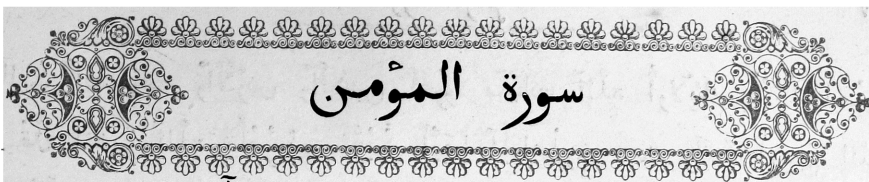 سورة المؤمن